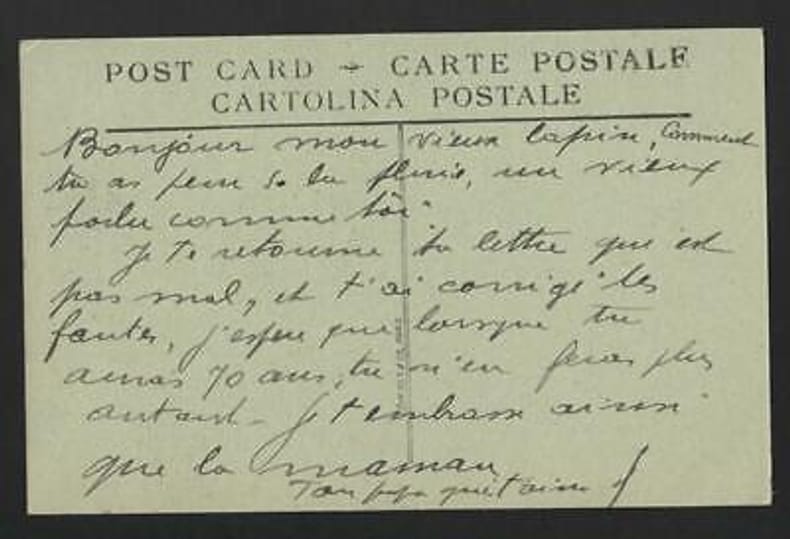 POST CARD - CARTE POSTALE
CARTOLINA POSTALE
Bonjour mon vieux lapin, Comment
tu as peur de la pluie, un vieux
poilu comme toi
Je te retourne ta lettre qui est
pas mal, et t'ai corrigé les
fautes, j'espere que lorsque tu
auras 70 ans, tu n'en feras plus
autant - Je t'embrasse ainsi
que la maman
Ton papa qui t'aime